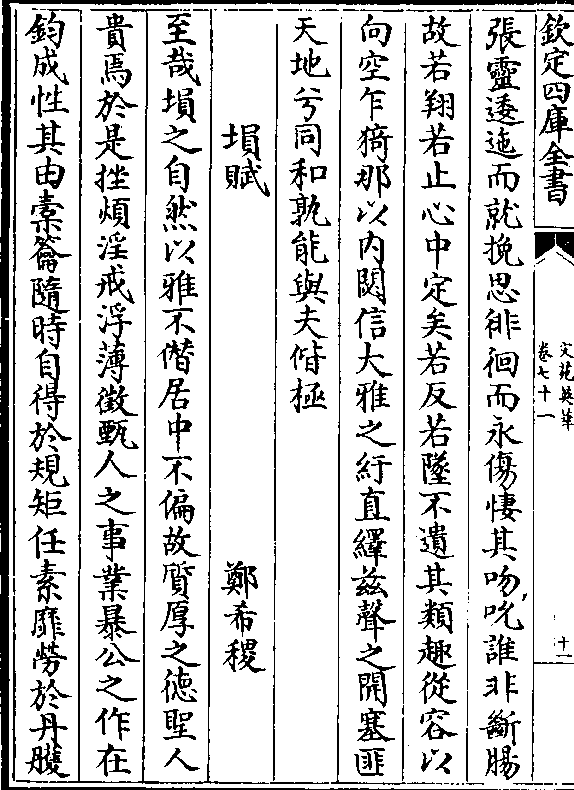 欽定四庫全書
文苑英華
卷七十一
十一
張靈逶迤而就挽思徘徊而永傷悽其吻吮誰非斷腸
故若翔若止心中定矣若反若墜不遺其類趣從容以
向空乍猗那以内閟信大雅之紆直繹兹聲之開塞匪
天地兮同和孰能與夫偕極
塤賦
鄭希稷
至哉塤之自然以雅不僭居中不偏故質厚之徳聖人
貴焉於是挫煩淫戒浮薄徴甄人之事業暴公之作在
鈞成性其由橐籥隨時自得於規矩任素靡勞於丹雘